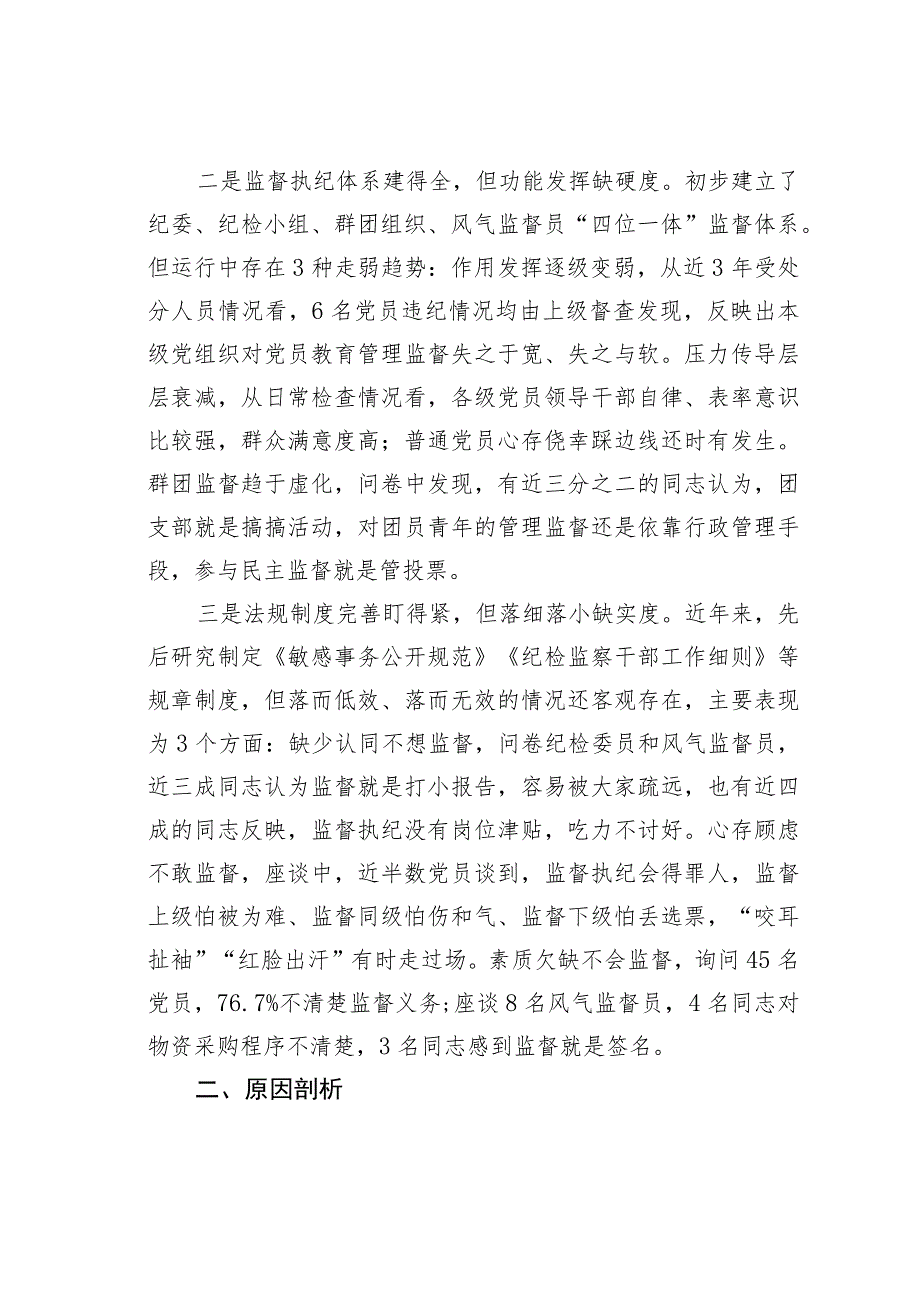 二是监督执纪体系建得全，但功能发挥缺硬度。初步建立了
纪委、纪检小组、群团组织、风气监督员“四位一体”监督体系。
但运行中存在3种走弱趋势：作用发挥逐级变弱，从近3年受处
分人员情况看，6名党员违纪情况均由上级督查发现，反映出本
级党组织对党员教育管理监督失之于宽、失之与软。压力传导层
层衰减，从日常检查情况看，各级党员领导干部自律、表率意识
比较强，群众满意度高；普通党员心存侥幸踩边线还时有发生。
群团监督趋于虚化，问卷中发现，有近三分之二的同志认为，团
支部就是搞搞活动，对团员青年的管理监督还是依靠行政管理手
段，参与民主监督就是管投票。
三是法规制度完善盯得紧，但落细落小缺实度。近年来，先
后研究制定《敏感事务公开规范》《纪检监察干部工作细则》等
规章制度，但落而低效、落而无效的情况还客观存在，主要表现
为3个方面：缺少认同不想监督，问卷纪检委员和风气监督员，
近三成同志认为监督就是打小报告，容易被大家疏远，也有近四
成的同志反映，监督执纪没有岗位津贴，吃力不讨好。心存顾虑
不敢监督，座谈中，近半数党员谈到，监督执纪会得罪人，监督
上级怕被为难、监督同级怕伤和气、监督下级怕丢选票，“咬耳
扯袖”“红脸出汗”有时走过场。素质欠缺不会监督，询问45名
党员，76.7%不清楚监督义务;座谈8名风气监督员，4名同志对
物资采购程序不清楚，3名同志感到监督就是签名。
二、原因剖析